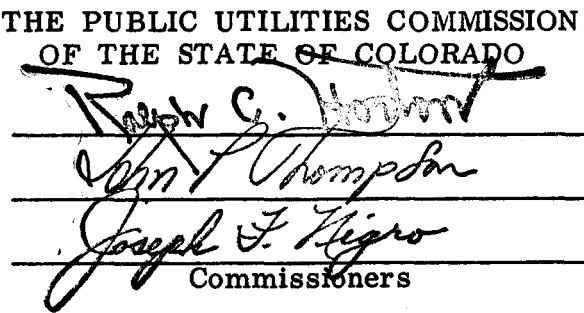 THE PUBLIC UTILITIES COMMISSION
OF THE STATE OF COLORADO
Ralph C. Horton
John P Thompson
Joseph F. Nigro
Commissioners